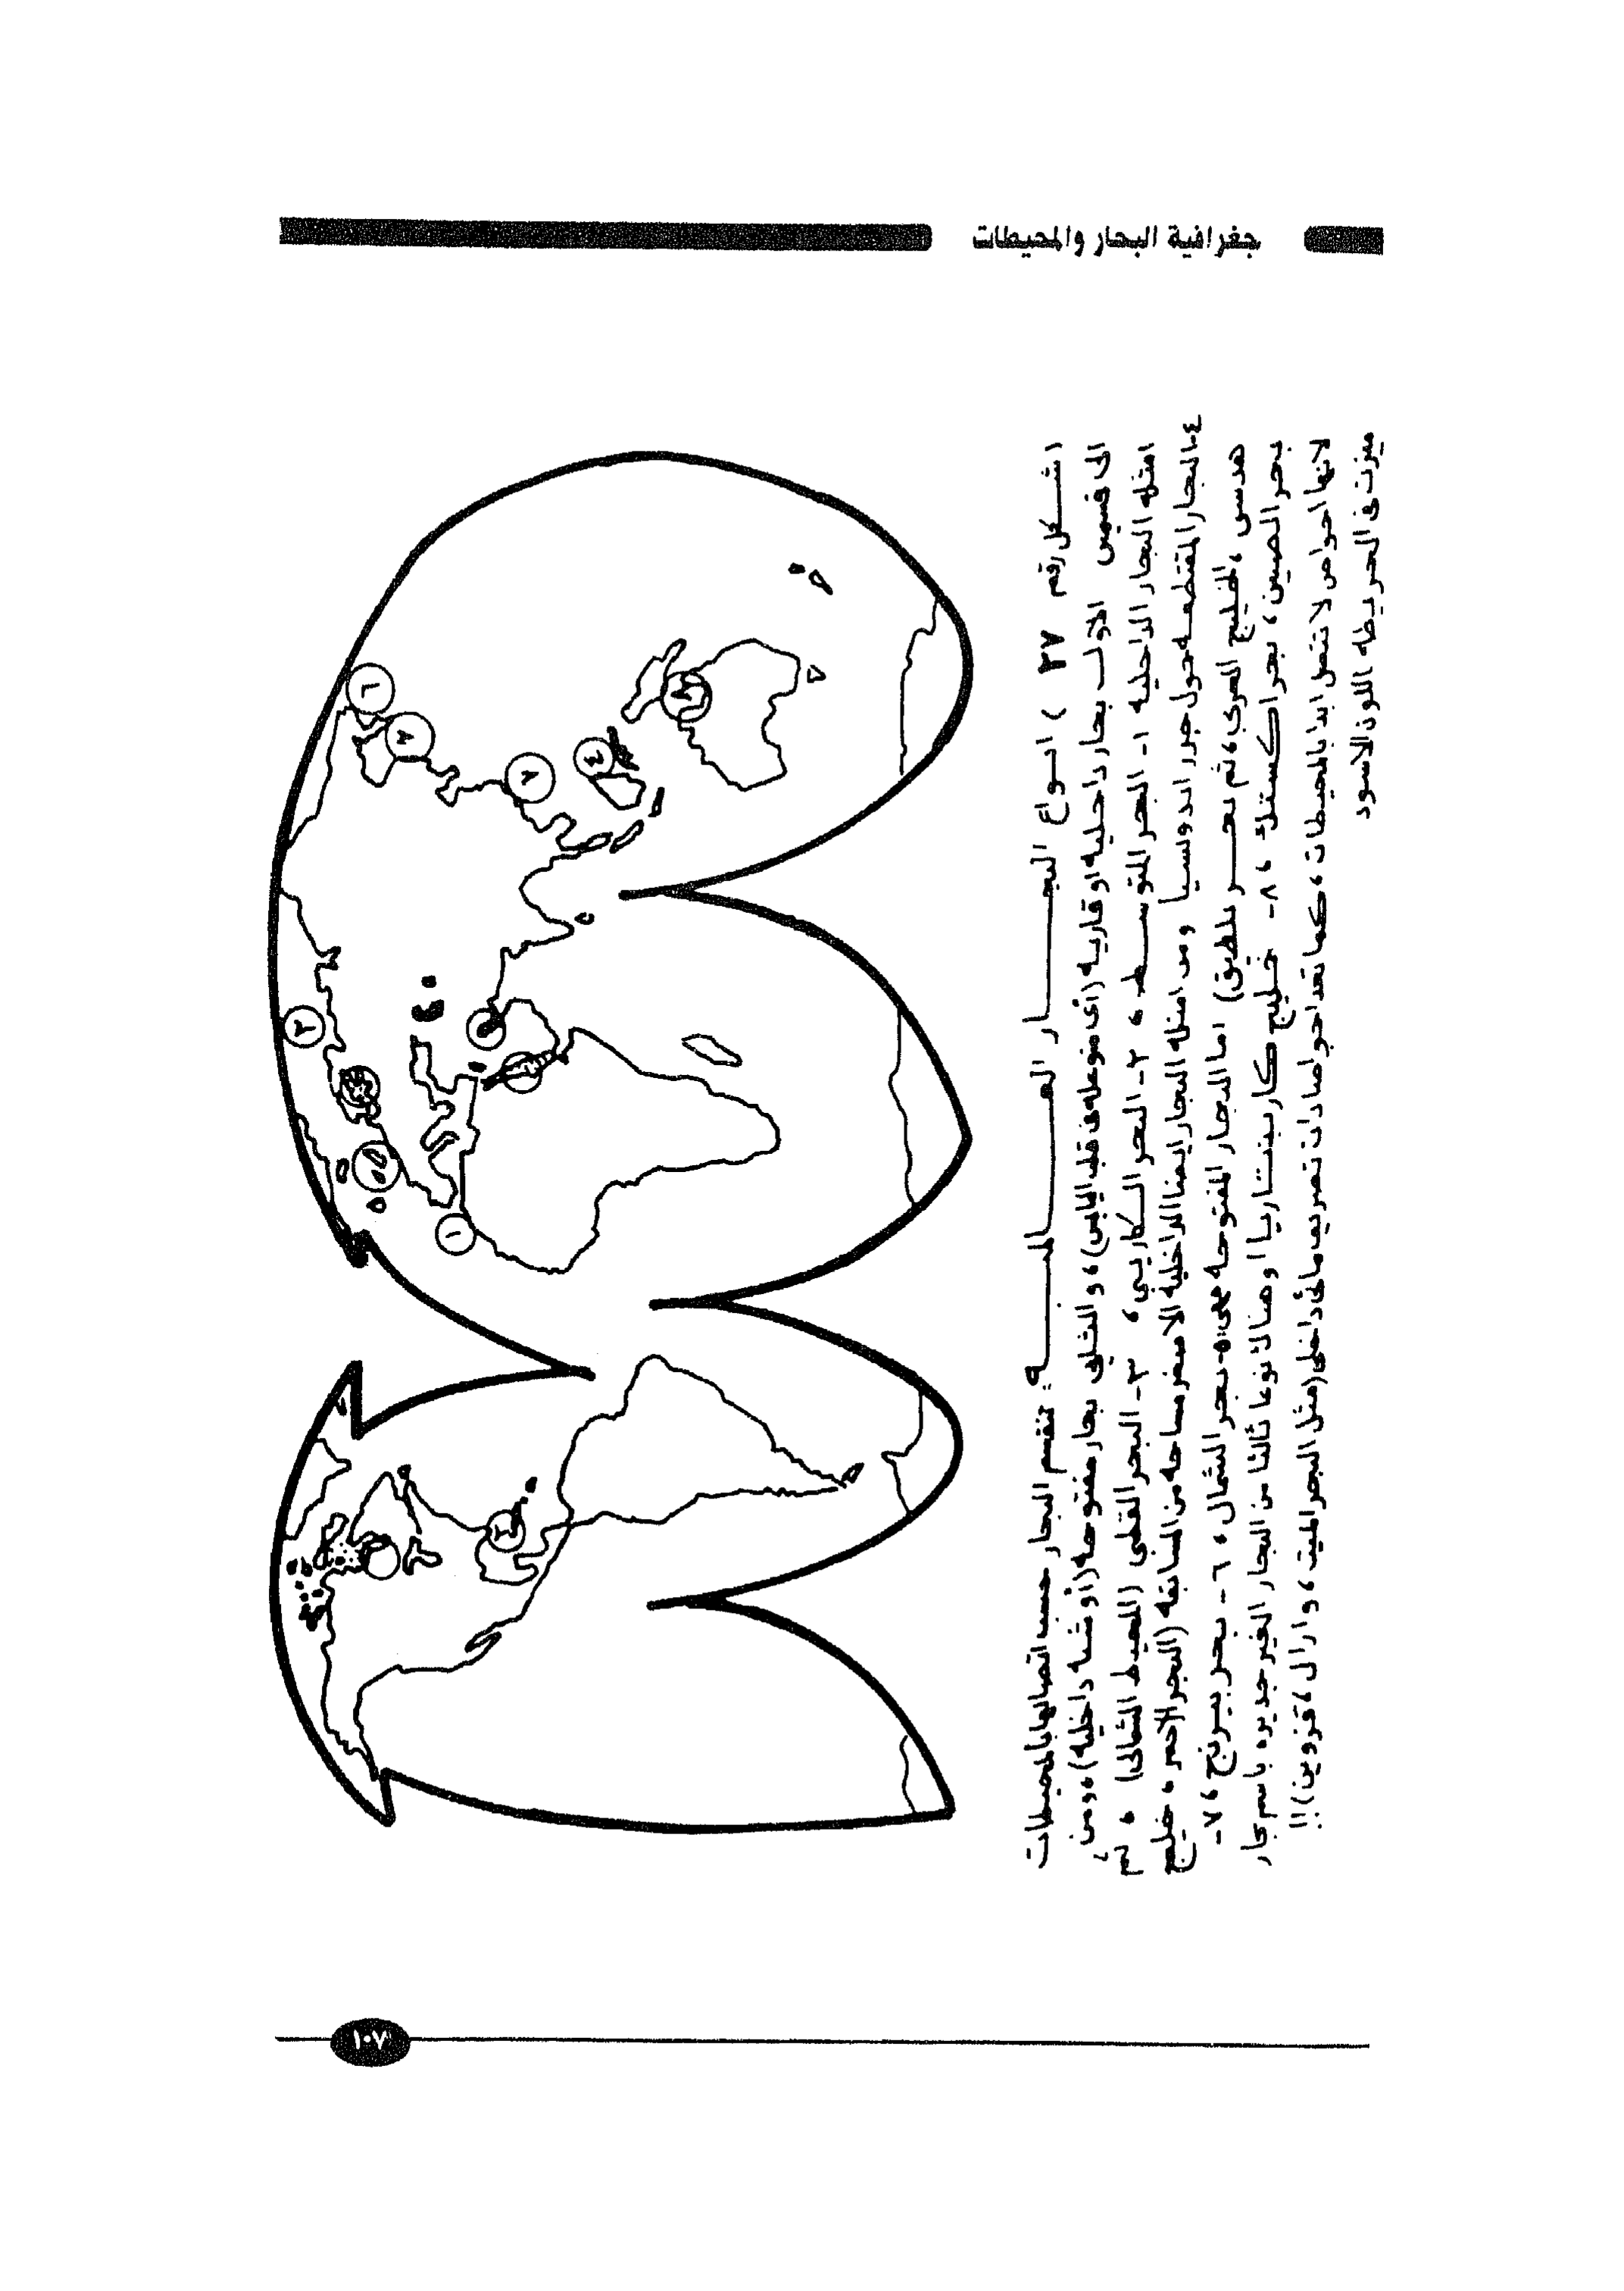 جغرافية البحار والمحيطات
(شكل رقم ٢٧) انواع البحار العالميه: تنقسم البحار حسب اتصالها بالمحيطات
الى قسمين الاول بحار داخليه او قاريه (أى متوغله فى قلب اليابس)، والثانى بحار مفتوحه (أو شبه داخليه) ومن
امثله البحار الداخليه ١- البحر المتوسط، ٢- البحر الكاريبي، ٣- البحر القطبى (المحيط الشمالى)، ثم
٤- البحار المقتطعه حول جزر اندونسيا ومن امثله البحار ايضا الداخليه الاصغر مساحه من السابقه (البحر الاحمر، خليج
هدسن، الخليج العربى، ثم بحر بلطيق) اما البحار المفتوحه فهى: ٥- بحر الشمال، ٦- بحر بيرنج، ٧-
بحر الصين، بحر اكستك، ٨- خليج كاربنتاريا وهناك نوعا ثالثا من البحار الغير جديره باسم بحار
لانها احواض لا تتصل ابدا بالمحيطات، كما تعد احواضا ذات تصريف مائى داخلى (مثل البحر الميت، وارال، قزوين)!!
ميزت فى الخريطه اللون الاسود
٦
٨
٨
٤
٧
٣
٥
١
٢
١٠٧